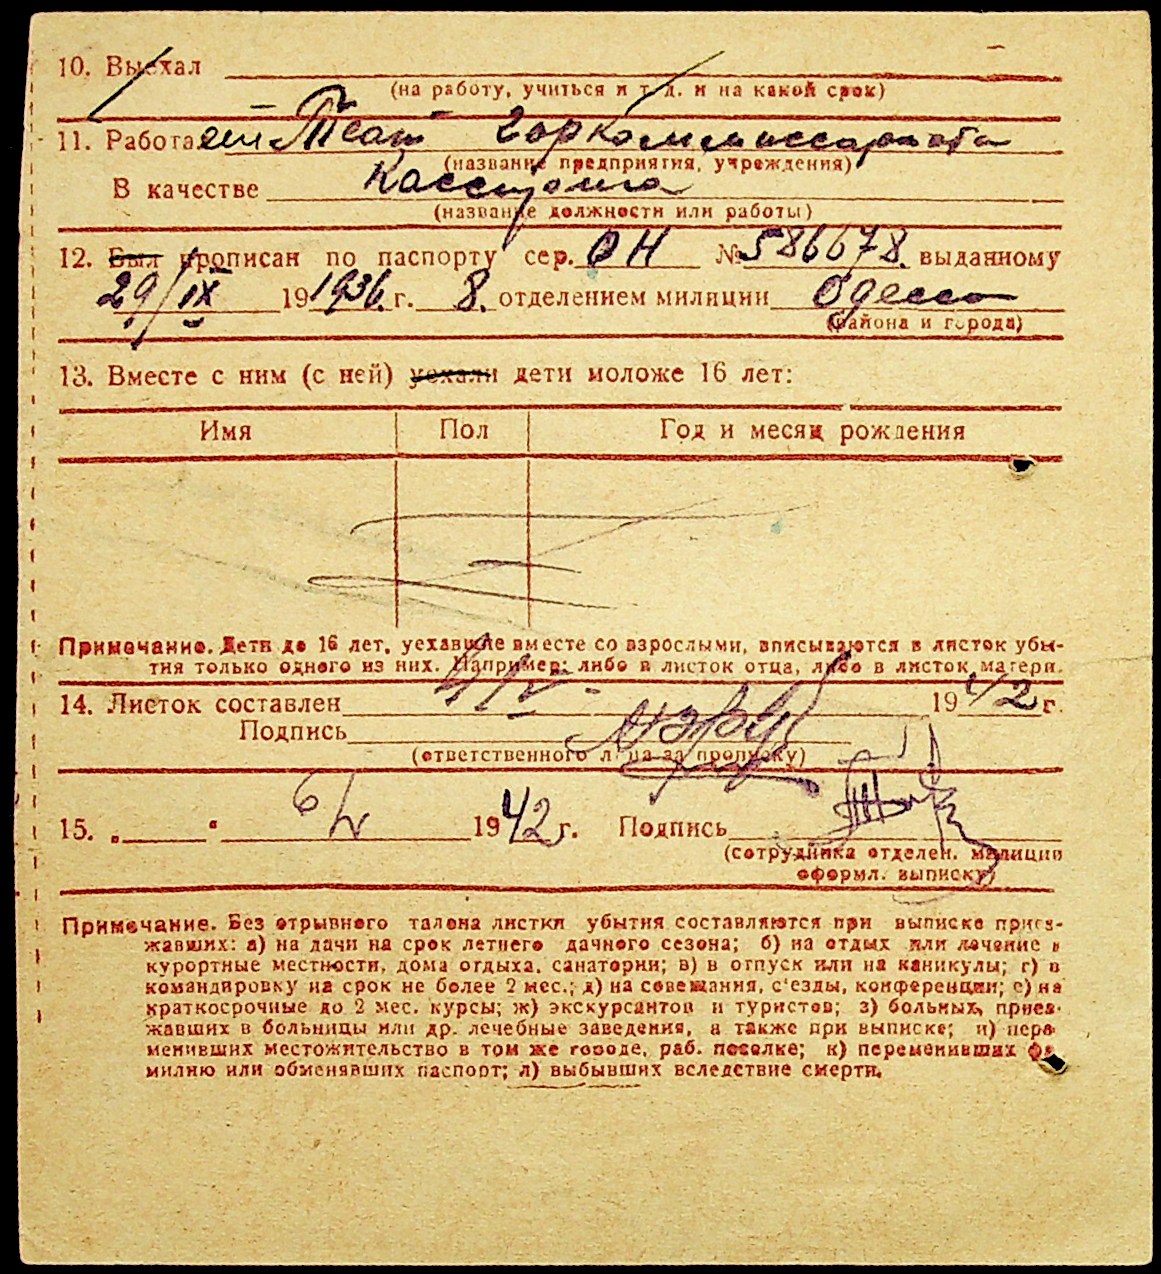 10. Выехал
(на работу, учиться и т. д. и на какой срок)
11. Работа ет Театр Горкоммиссариата
(название предприятия, учреждения)
В качестве Кассирша
(название должности или работы)
12. Был прописан по паспорту сер. ОН № 586678. выданному
29/IX 19 1936 г. 8. отделением милиции Одесса
(района и города)
13. Вместе с ним (с ней) уехали дети моложе 16 лет:
Имя Пол Год и месяц рождения
Примечание. Дети до 16 лет, уехавшие вместе со взрослыми, вписываются в листок убы-
тия только одного из них. Например: либо в листок отца, либо в листок матери.
14. Листок составлен 19 42 г.
Подпись
(ответственного лица за прописку)
15. „ “ 6/V 19 42 г. Подпись
(сотрудника отделен. милиции
оформл. выписку)
Примечание. Без отрывного талона листки убытия составляются при выписке приез-
жавших: а) на дачи на срок летнего дачного сезона; б) на отдых или лечение в
курортные местности, дома отдыха, санатории; в) в отпуск или на каникулы; г) в
командировку на срок не более 2 мес.; д) на совещания, с'езды, конференции; е) на
краткосрочные до 2 мес. курсы; ж) экскурсантов и туристов; з) больных, приез-
жавших в больницы или др. лечебные заведения, а также при выписке; и) пере
менивших местожительство в том же городе, раб. поселке; к) переменивших фа
милию или обменявших паспорт; л) выбывших вследствие смерти.